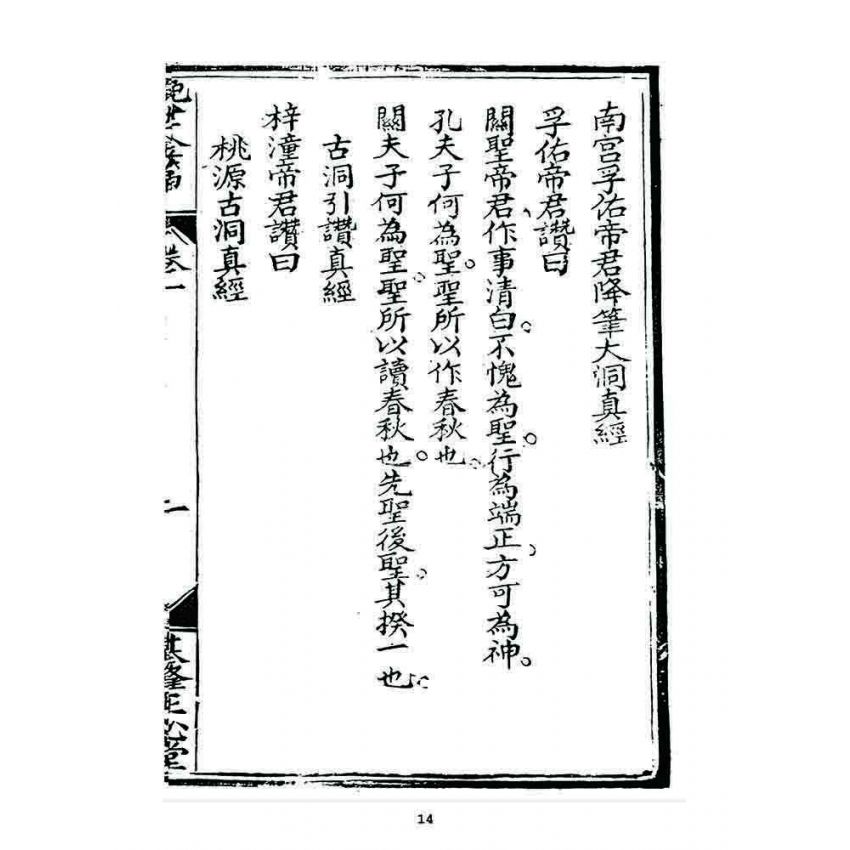 南宮孚佑帝君降筆大洞真經
孚佑帝君讚曰
關聖帝君作事清白不愧為聖行為端正方可為神
孔夫子何為聖聖所以作春秋也
關夫子何為聖聖所以讀春秋也先聖後聖其揆一也
古洞引讚真經
梓潼帝君讚曰
桃源古洞真經
卷一
一
14